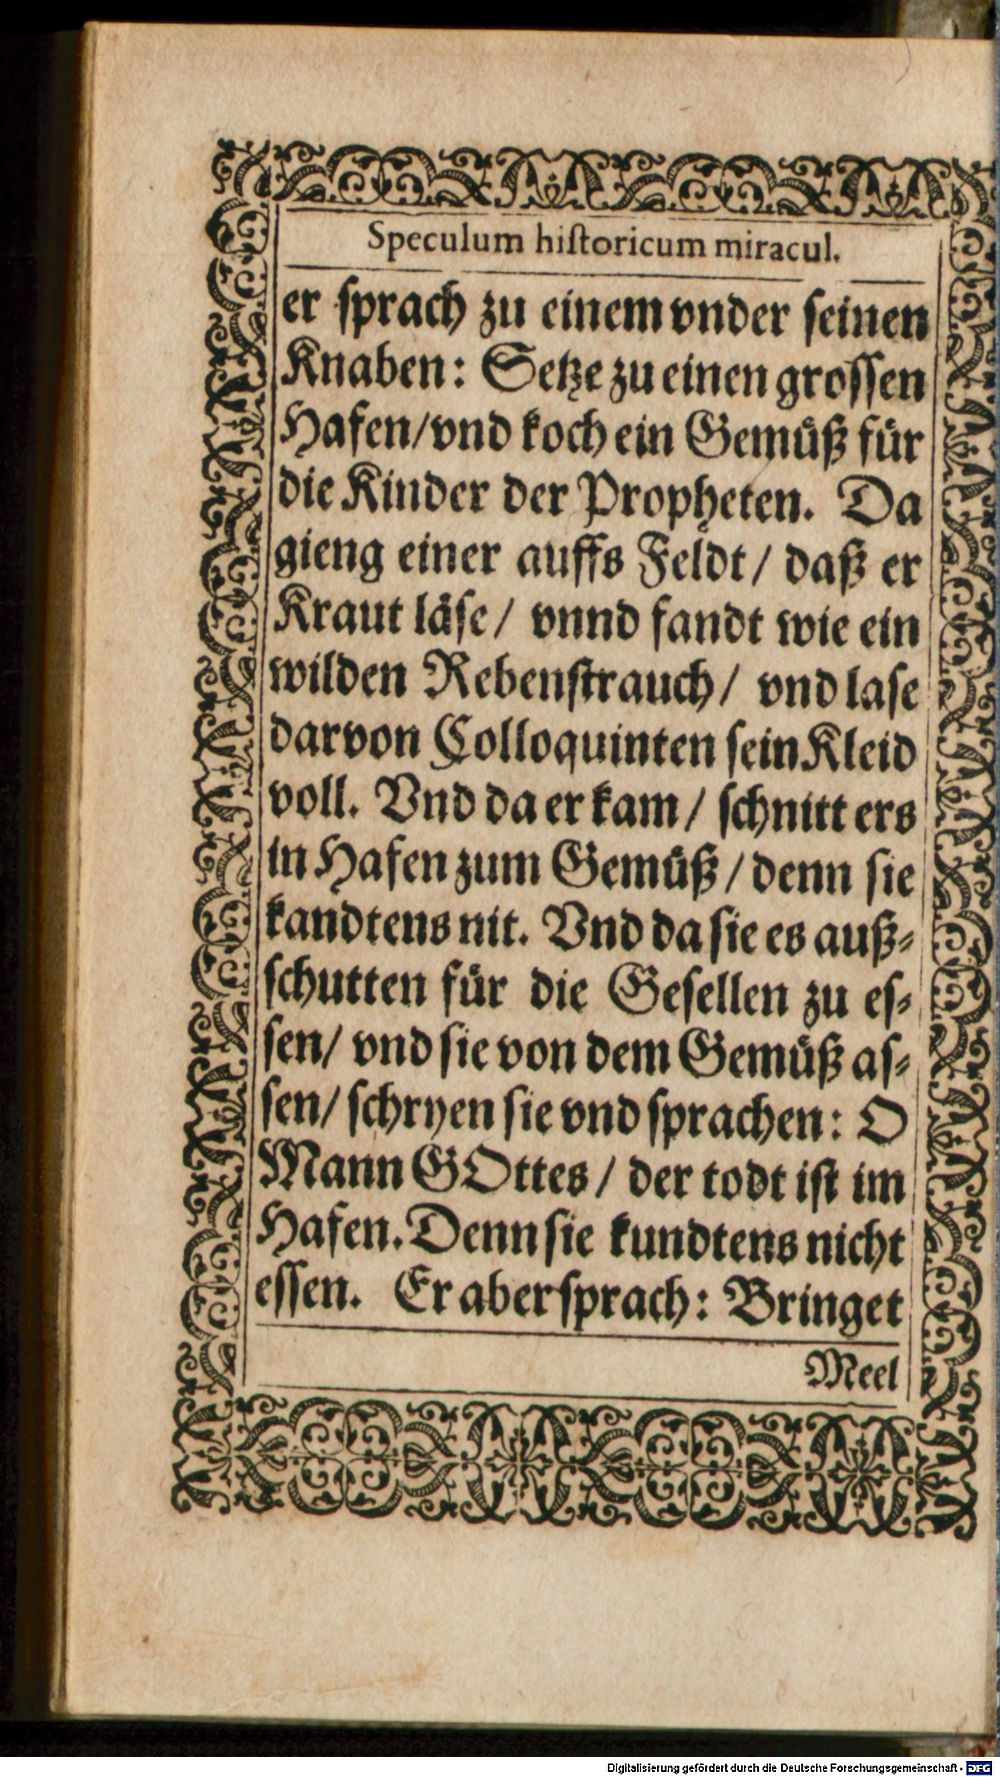 Speculum hiſtoricum miracul.
er ſprach zu einem vnder ſeinen
Knaben: Setze zu einen groſſen
Hafen/vnd koch ein Gemüß für
die Kinder der Propheten. Da
gieng einer auffs Feldt/ daß er
Kraut läſe/ vnnd fandt wie ein
wilden Rebenſtrauch/ vnd laſe
darvon Colloquinten ſein Kleid
voll. Vnd da er kam/ ſchnitt ers
in Hafen zum Gemüß/denn ſie
kandtens nit. Vnd da ſie es auß⸗
ſchutten für die Geſellen zu eſ⸗
ſen/ vnd ſie von dem Gemüß aſ⸗
ſen/ ſchryen ſie vnd ſprachen: O
Mann GOttes/ der todt iſt im
Hafen. Denn ſie kundtens nicht
eſſen. Er aber ſprach: Bringet
Meel
Digitalisierung gefördert durch die Deutsche Forschungsgemeinschaft - DFG